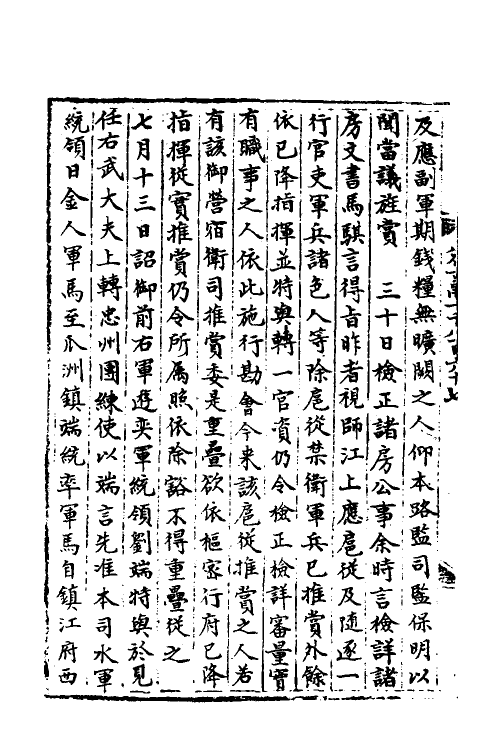 及應副軍期錢糧無曠闕之人仰本路監司監保明以
聞當議旌賞　三十日檢正諸房公事余時言檢詳諸
房文書馬騏言得旨昨者視師江上應扈從及隨逐一
行官吏軍兵諸色人等除扈從禁衛軍兵已推賞外餘
依已降指揮並特與轉一官資仍令檢正檢詳審量實
有職事之人依此施行勘會今来該扈從推賞之人若
有該御營宿衛司推賞委是重疊欲依樞密行府已降
指揮從實推賞仍令所属照依除豁不得重疊從之
七月十三日詔御前右軍遊奕軍統領劉端特與於見
任右武大夫上轉忠州團練使以端言先准本司水軍
統領日金人軍馬至瓜洲鎮端統率軍馬自鎮江府西